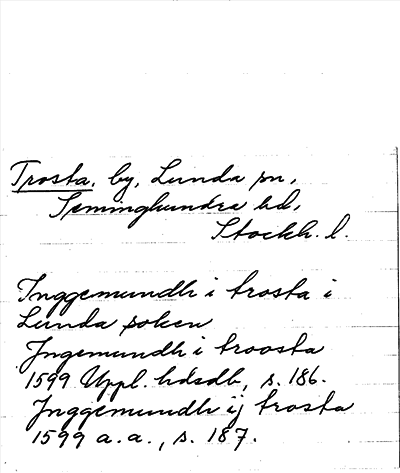 Trosta, by, Lunda sn,
Seminghundra hd,
Stockh. l.
Inggemundh i trosta i
Lunda soken
Jngemundh i troosta
1599 Uppl. hdsdb, s. 186.
Jnggemundh ij trosta
1599 a. a., s. 187.